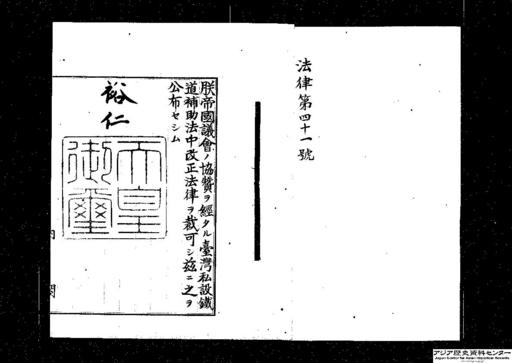 法律第四十一號
朕帝國議會ノ協贊ヲ經タル臺灣私設鐵
道補助法中改正法律ヲ裁可シ茲ニ之ヲ
公布セシム
裕仁
天皇
御璽
内
閣
アジア歴史資料センター
Japan Center for Asian Historical Records